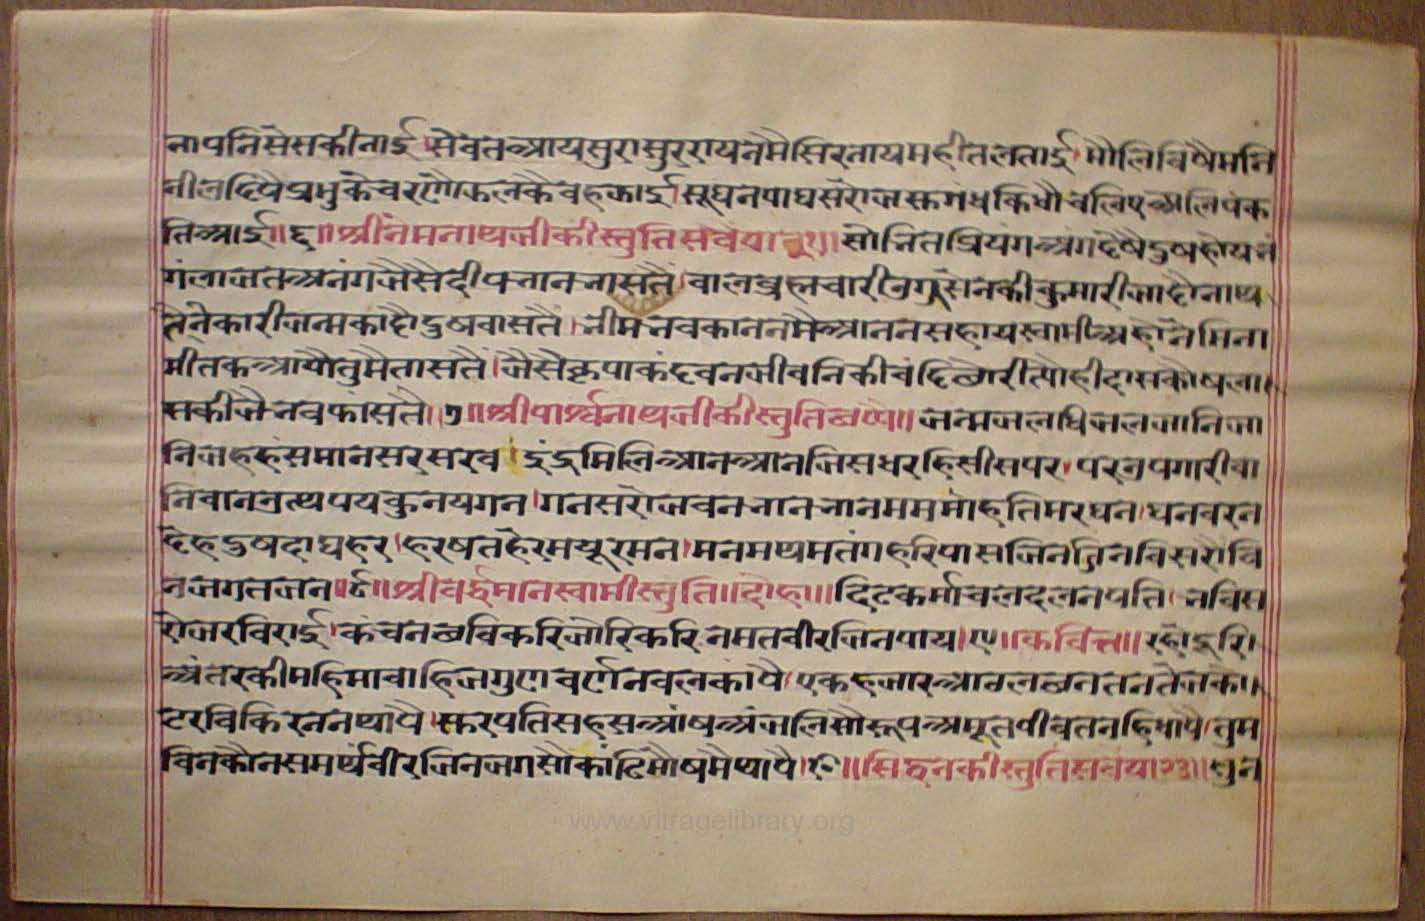 नापनिसेसकीनाई।सेवतआयसुरासुररायनमैसिरनायमहीतलताई।मौलिविषैमनि
नीलदिपैप्रभुकेचरणौऊलकैवहऊाई।सूघनपाघसरोजसुगंधकिधौचलिएअलिपंक
तिआई॥६॥श्रीनेमनाथजीकीस्तुतिसवैया३१॥सोनितप्रियंगअंगदेषैदुषहोयनं
गंलाजतअनंगजैसैदीपनानुनासतैं।वालब्रह्मचारीउग्रसेनकीकुमारीजादौनाथ
तैनेकारीजन्मकादौदुषवासतैं।नीमनवकाननमैआननसहायस्वामीअहोनेमिना
मीतकआयौतुमैतासतैं।जैसैकृपाकंदवनजीवनिकीवंदिछोरीत्यौहीदासकौषला
सकीजैनवफांसतै॥७॥श्रीपार्श्वनाथजीकीस्तुतिछप्पै॥जन्मजलधिजलजानिजा
निजहहंसमानसरसरव।इंद्रमिलिआनआनजिसधरहिसीसपर।परउपगारीवा
निवानउत्थपयकुनयगन।गनसरोजवननानुनानममममोहतिमरघन।घनवरन
देहदुषदाघहर।हरषतहेरमयूरमन।मनमथमतंगहरिपासजिनजिनविसरौवि
नजगतजन॥८॥श्रीवर्द्धमानस्वामीस्तुति॥दोहा॥दिढकर्माचलदलनपति।नविस
रोजरविराई।कंचनछविकरिजोरिकरिनमतवीरजिनपाय।९॥कवित्त॥रहोदूरि
अंतरकीमहिमावाहिजगुणवर्णनवलकांपै।एकहजारआठलछनतनतेजको
टरविकिरननथापै।सुरपतिसहसआंषअंजलिसौरूपअमृतपीवतनहिधापै।तुम
विनकौनसमर्थवीरजिनजगसौकाढिमौषमैथापै।१०॥सिद्धनकीस्तुतिसवैया२३॥धुन
www.vitragelibrary.org